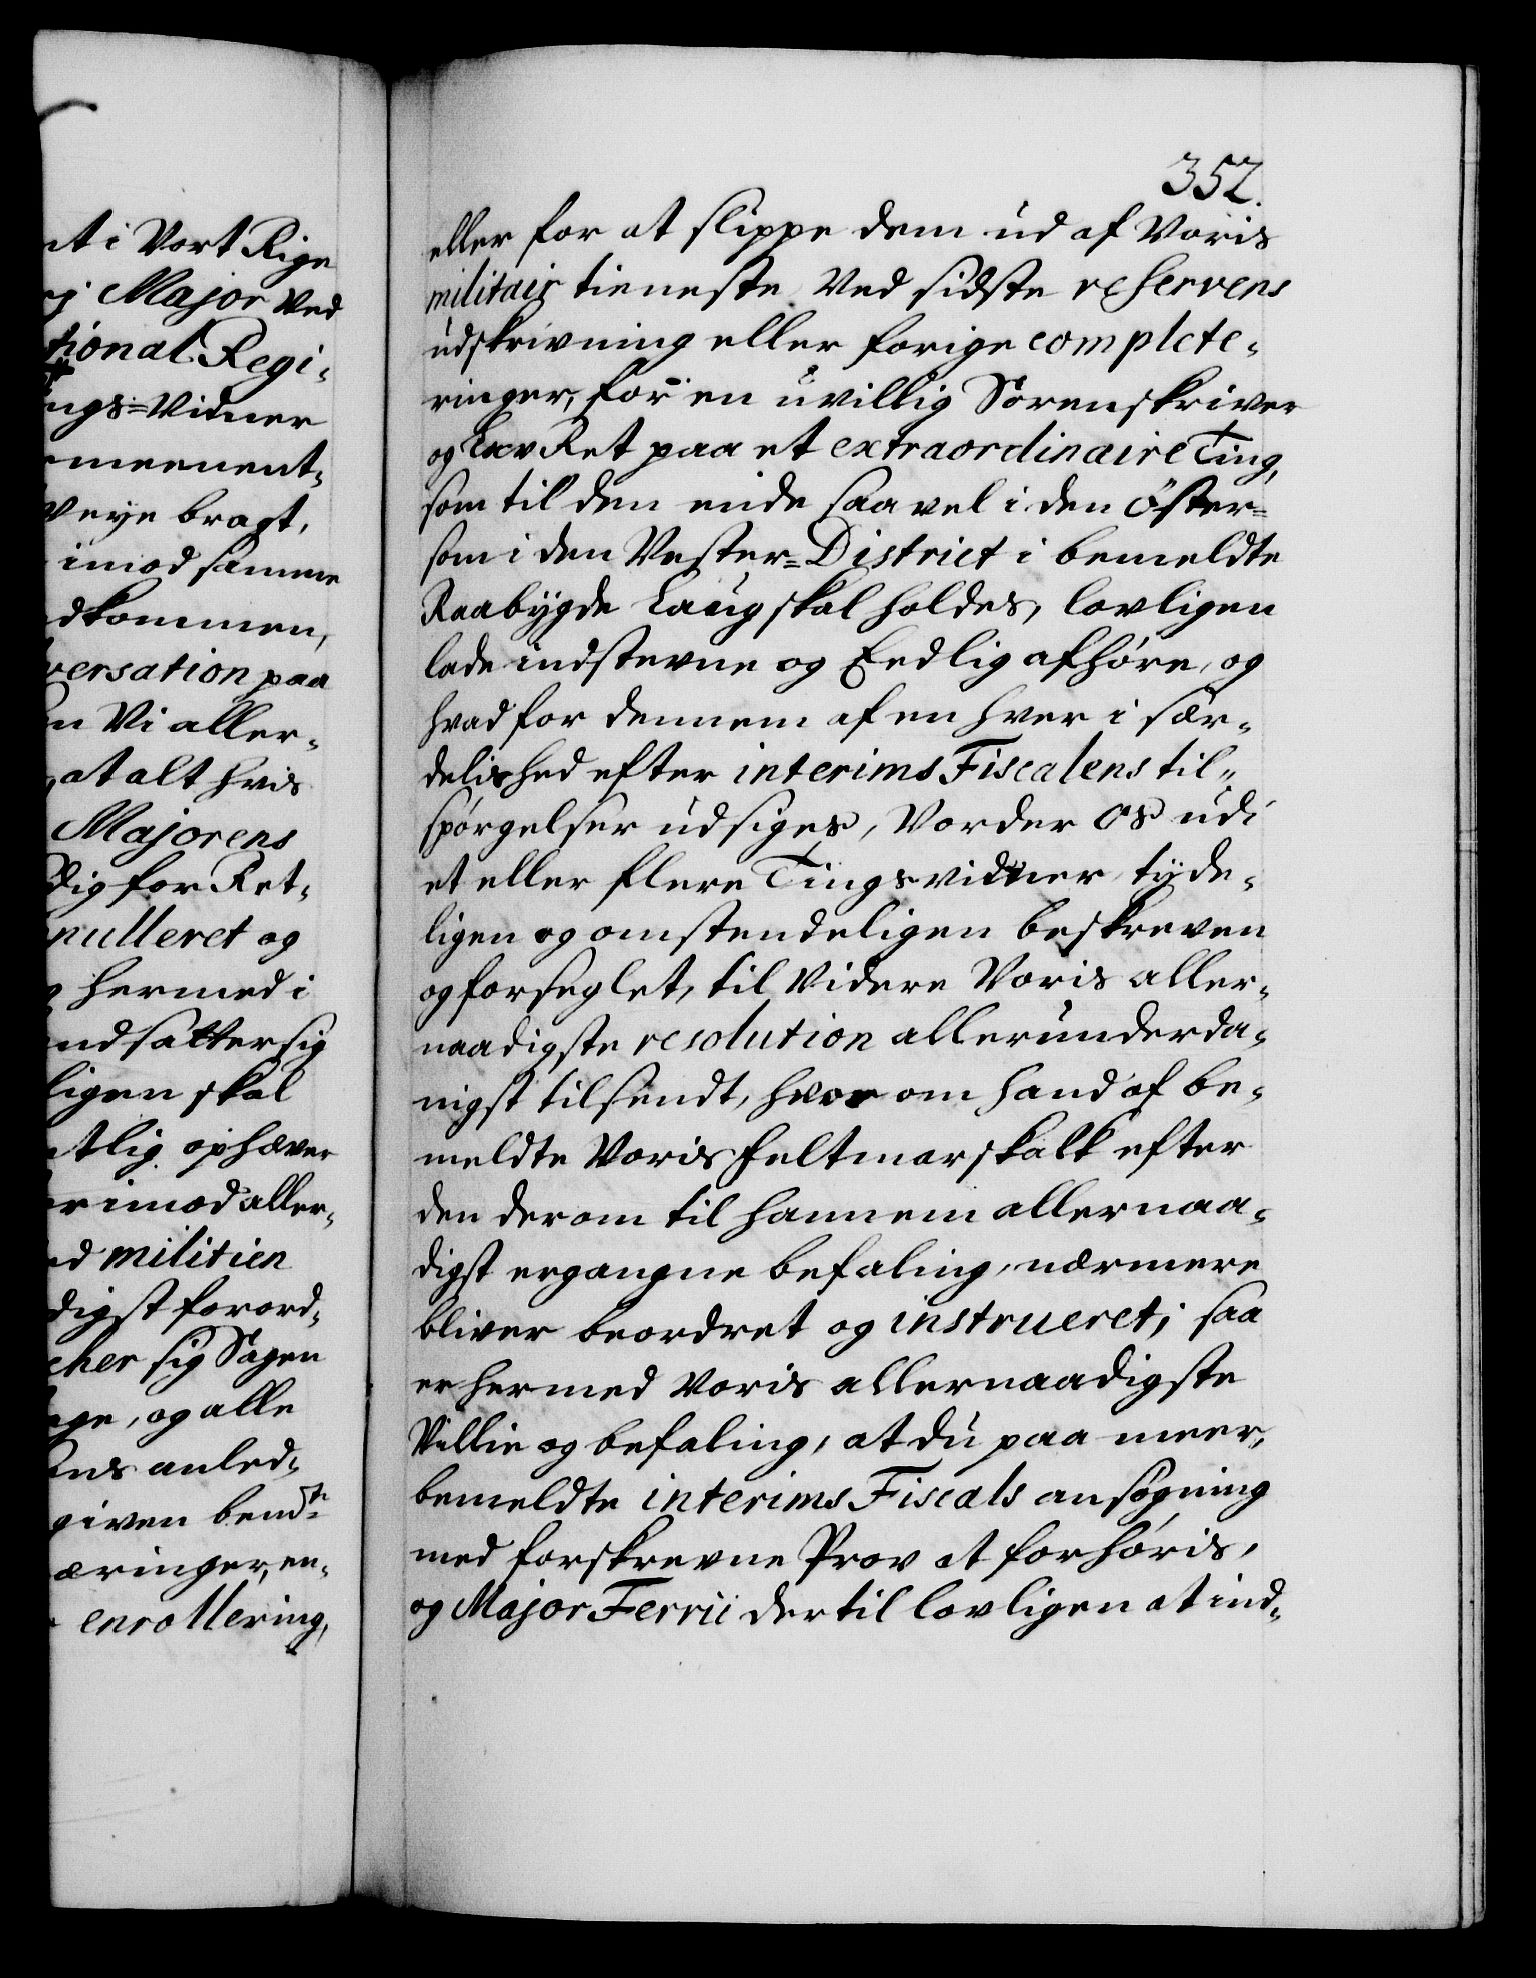 nt i Vort Rige
rj Major ved
tional Regi-
ngs-Vidner
meenent-
veye bragt,
imod samme
dkommen,
versation paa
en Vi aller-
at alt hvis
Majorens
dig for Ret-
nulleret og
hermed i
ndsatter sig
ligen skal
tlig ophæver
er imod aller-
ed militien
digst forord-
cher sig Sagen
age, og alle
ens anled-
given bemte
æringer, en-
enrollering,
352.
eller for at slippe dem ud af Voris
militair tieneste ved sidste reservens
udskrivning eller forige complete-
ringer, for en uvillig Sorenskriver
og Lav Ret paa et extraordinaire Ting,
som til den ende saa vel i den Öster-
som i den Vester-District i bemeldte
Raabygde Laug skal holdes, lovligen
lade indstevne og Eedlig afhøre, og
hvad for dennem af en hver i sær-
delished efter interims Fiscalens til-
spørgelser udsiges, Vorder os udi
et eller flere Tingsvidner tyde-
ligen og omstendeligen beskreven
og forseglet, til Videre Voris aller-
naadigste resolution allerunderda-
nigst tilsendt, hvorom hand af be-
meldte Voris Feltmarskalk efter
den derom til hannem allernaa-
digst ergangne befaling, nærmere
bliver beordret og instrueret; saa
er hermed Voris allernaadigste
Villie og befaling, at du paa meer-
bemeldte interims Fiscals ansøgning
med forskrevne Prov at forhøris,
og Major Ferrii dertil lovligen at ind-